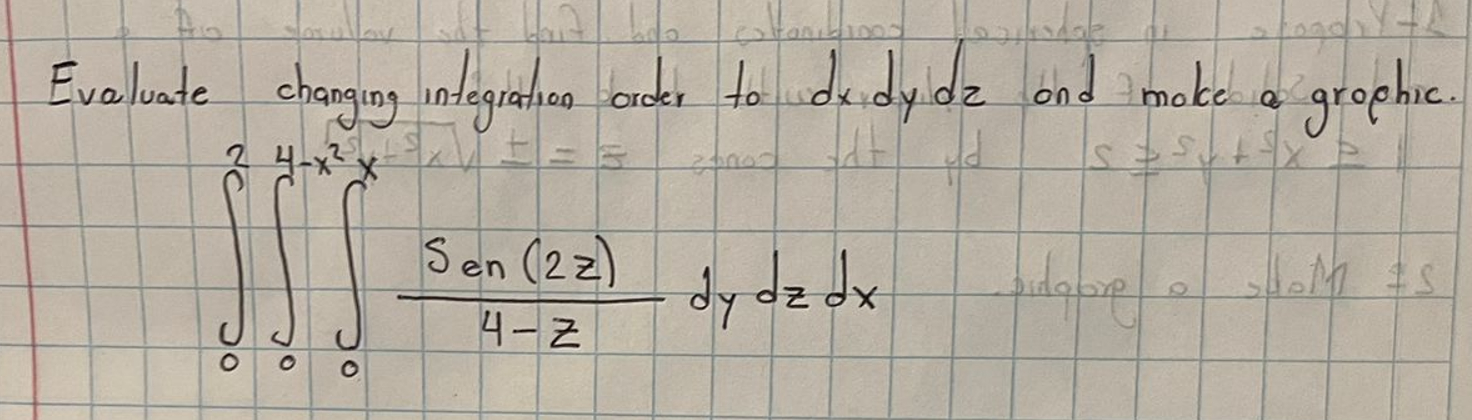 Evaluate changing integration order to dx dy dz and make a graphic.
2 4-x² x
∫ ∫ ∫ Sen (2z) / 4-z dy dz dx
0 0 0